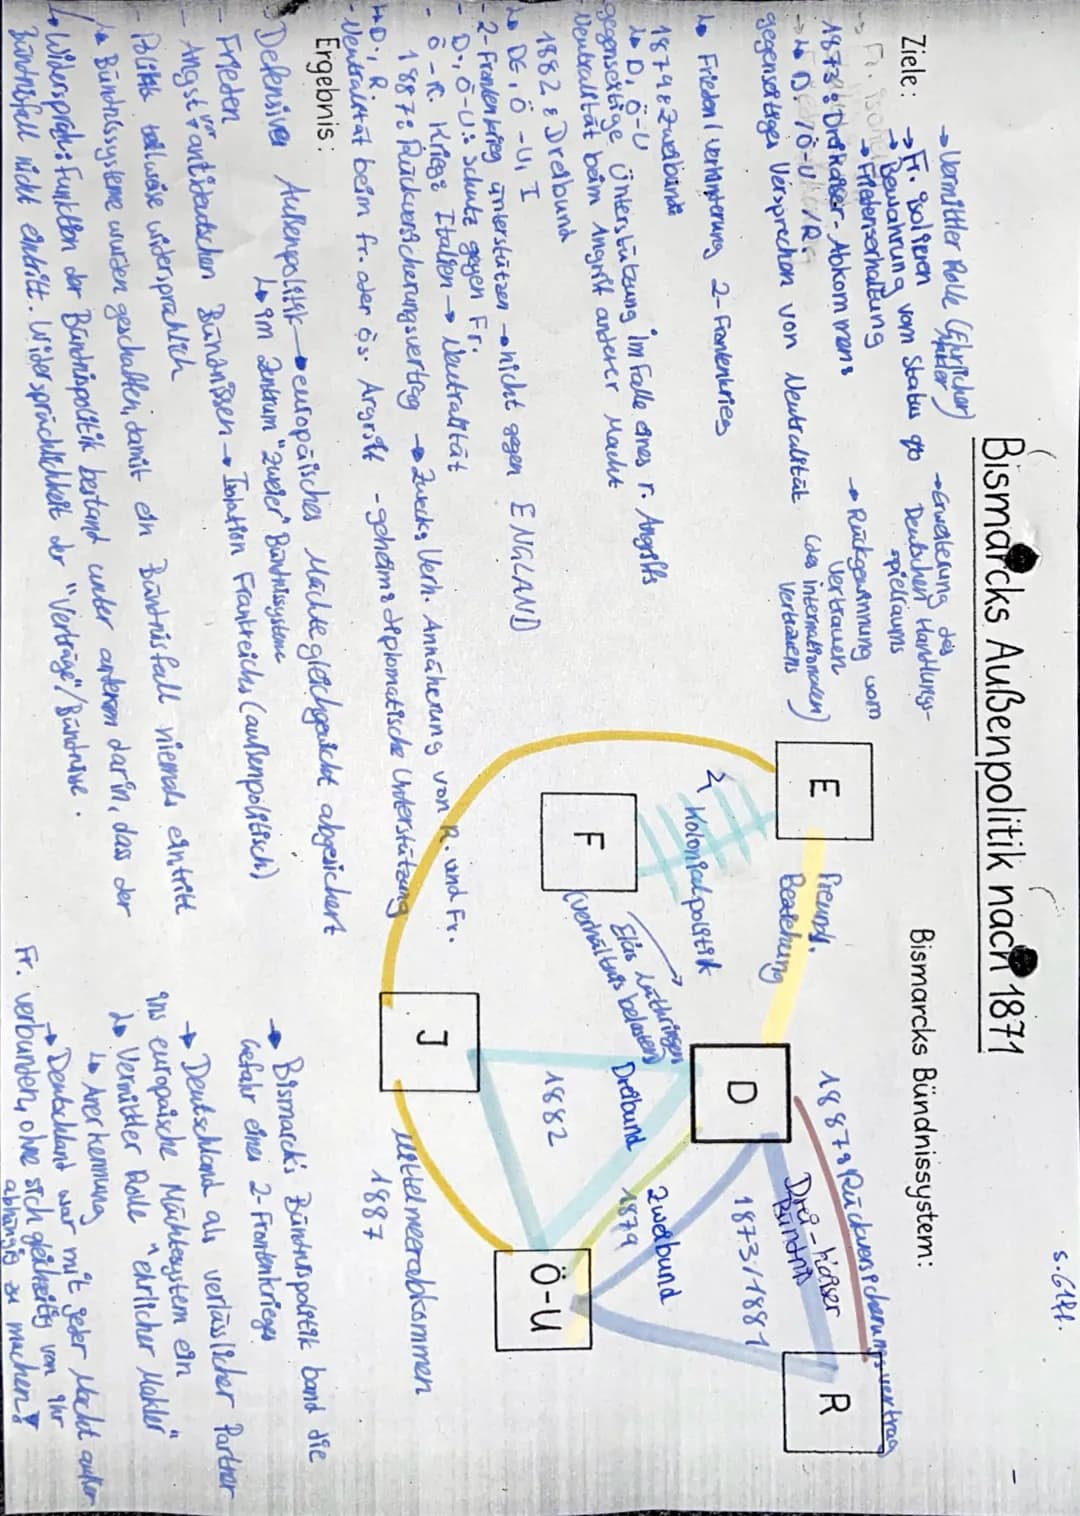 S. 61ff.
Bismarcks Außenpolitik nach 1871
→ Vermittler Rolle (Ehrlicher Makler)
Ziele: → Fr. isolieren
→ Bewahrung vom Status quo
→ Friedenserhaltung
→ Erweiterung des Deutschen Handlungs-
spielraums
→ Rückgewinnung vom
Vertrauen
(des internationalen)
Vertrauens
1873: Dreikaiser-Abkommens
↳ D, Ö-U, R
gegenseitiges Versprechen von Neutralität
↳ Frieden/verhinderung 2-Frontenkrieg
1879: Zweibund
↳ D, Ö-U
gegenseitige Unterstützung im Falle eines r. Angriffs
Neutralität beim Angriff anderer Macht
1882: Dreibund
↳ DE, Ö-U, I
- 2-Frontenkrieg unterstützen → nicht gegen ENGLAND
- D, Ö-U: Schutz gegen Fr.
- Ö-R. Krieg: Italien → Neutralität
1887: Rückversicherungsvertrag → Zwecks Verh. Annäherung von R. und Fr.
↳ D, R
- Neutralität beim fr. oder ös. Angriff - geheime diplomatische Unterstützung
Ergebnis:
Defensive Außenpolitik → europäisches Mächtegleichgewicht abgesichert
↳ im Zentrum "zweier" Bündnissysteme
- Frieden
- Angst vor antideutschen Bündnissen → Isolation Frankreichs (außenpolitisch)
- Politik teilweise widersprüchlich
↳ Bündnissysteme wurden geschaffen, damit ein Bündnisfall niemals eintritt
↳ Widerspruch: Funktion der Bündnispolitik bestand unter anderem darin, dass der
Bündnisfall nicht eintritt. Widersprüchlichkeit der "Verträge"/Bündnisse.
Bismarcks Bündnissystem:
E
Freund.
Beziehung
Kolonialpolitik
F
Elsas Luthringen
(verhältnis belastend)
D
1887: Rückversicherungsvertrag
Drei-Kaiser
Bündnis
1873/1881
R
Zweibund
1879
Dreibund
1882
J
Ö-U
Mittelmeerabkommen
1887
→ Bismarck's Bündnispolitik band die
Gefahr eines 2-Frontenkrieges
→ Deutschland als verlässlicher Partner
ins europäische Mächtesystem ein
↳ Vermittler Rolle "ehrlicher Makler"
↳ Anerkennung
→ Deutschland war mit jeder Macht außer
Fr. verbunden, ohne sich gleichzeitig von ihr
abhängig zu machen!